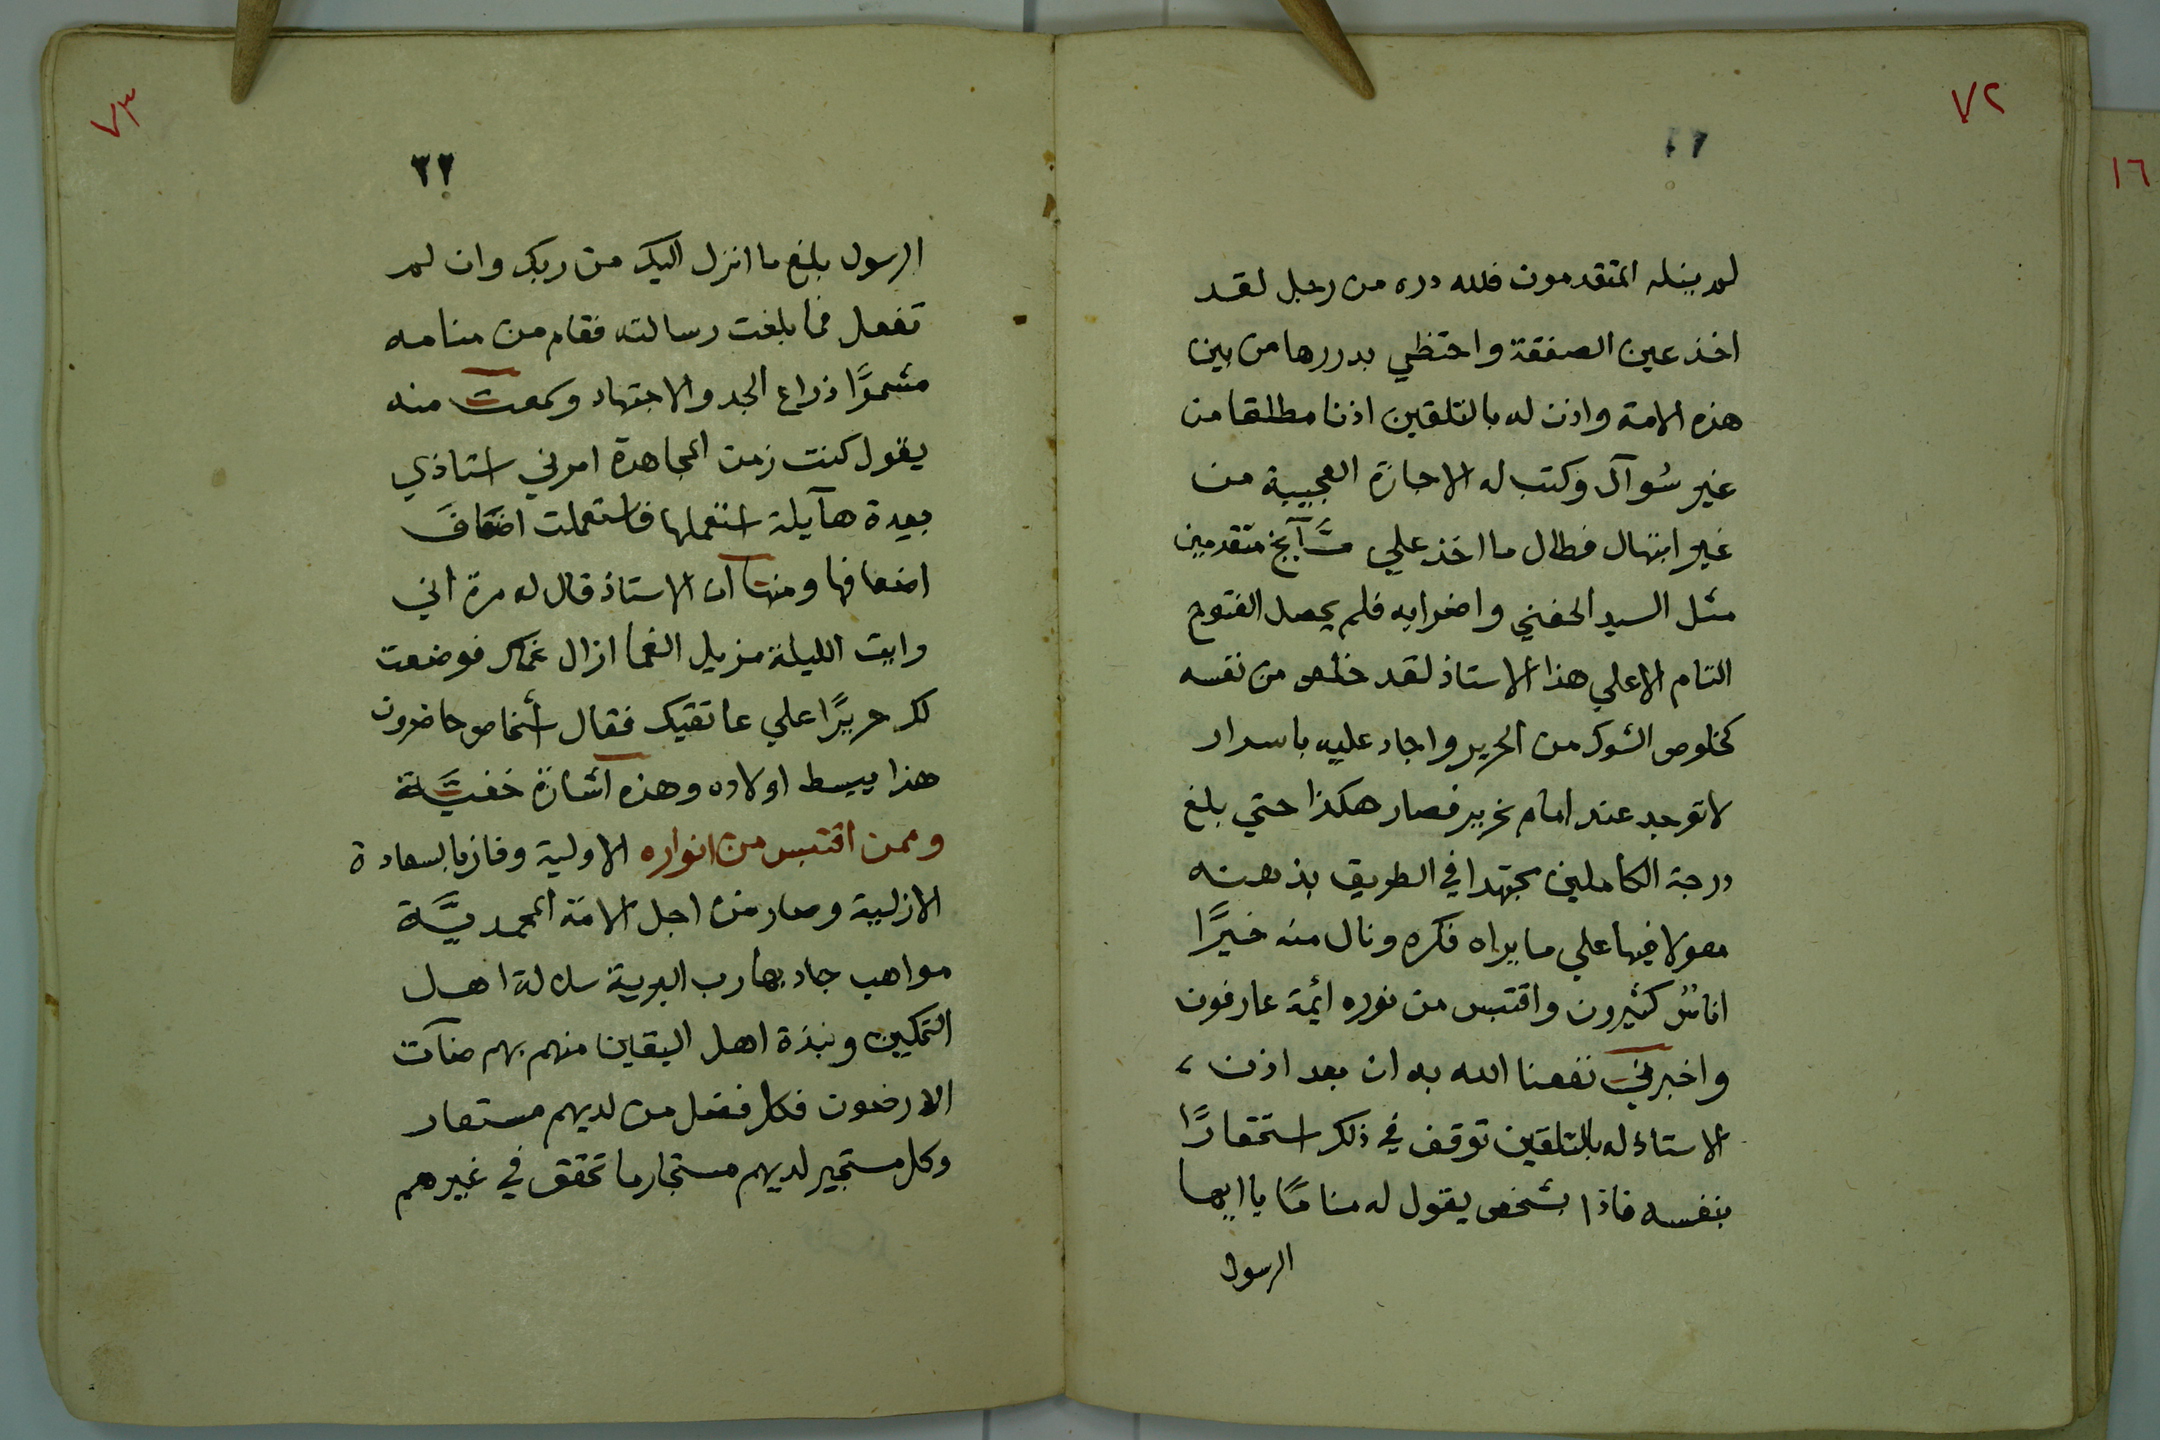 ٧٢
لم ينله المتقدمون فلله دره من رجل لقد
اخذ عين الصفقة واحتظي بدررها من بين
هذه الامة واذن له بالتلقين اذنا مطلقا من
غير سُوآل وكتب له الاجازة العجيبة من
غير ابتهال فطال ما اخذ علي مشآيخ متقدمين
مثل السيد الحفني واضرابه فلم يحصل الفتوح
التام الا علي هذا الاستاذ لقد خلص من نفسه
كخلوص الشوك من الحرير واجاد عليه باسرار
لا توجد عند امام نحرير فصار هكذا حتي بلغ
درجة الكاملين مجتهدا في الطريق بذهنه
معولا فيها علي ما يراه فكره ونال منه خيرًا
اناسٌ كثيرون واقتبس من نوره ائمة عارفون
واخبرني نفعنا الله به ان بعد اذن
الاستاذ له بالتلقين توقف في ذلك استحقارًا
بنفسه فاذا بشخص يقول له منامًا يا ايها
الرسول
١٦
٧٣
٣٢
الرسول بلغ ما انزل اليك من ربك وان لم
تفعل فما بلغت رسالته فقام من منامه
مشمرًا ذراع الجد والاجتهاد وسمعت منه
يقول كنت زمن المجاهدة امرني استاذي
بعدة هآيلة استعملها فاستعملت اضعافَ
اضعافها ومنها ان الاستاذ قال له مرة اني
رايت الليلة مزيل الغما ازال غمك فوضعت
لك حريرًا علي عاتقيك فقال أشخاص حاضرون
هذا يبسط اولاده وهذه اشارة خفيَّة
وممن اقتبس من انواره الاولية وفاز بالسعادة
الازلية وصار من اجل الامة المحمديَّة
مواهب جاد بها رب البرية سلالة اهل
التمكين ونبذة اهل اليقين منهم بهم ضآت
الارضون فكل فضل من لديهم مستعار
وكل مستجير لديهم مستجار ما تحقق في غيرهم